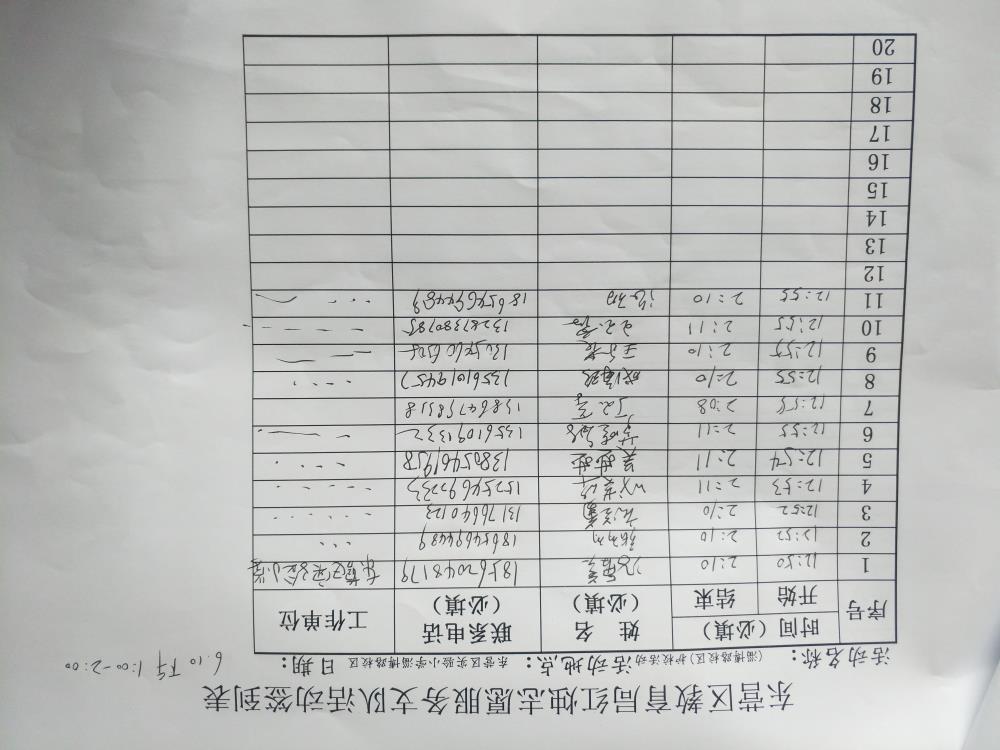 东营区教育局红烛志愿服务支队活动签到表
活动名称：（淄博路校区）护校活动 活动地点：东营区实验小学淄博路校区 日期：6.10 下午 1:00-2:00
序号 时间（必填） 姓 名（必填） 联系电话（必填） 工作单位
开始 结束
1 12:50 2:10 18562048179 东营区实验小学
2 12:52 2:10 18654694489
3 12:52 2:10 13176640123
4 12:53 2:11 15254692233
5 12:54 2:11 13805461958
6 12:55 2:11 13561091332
7 12:55 2:08 13864758318
8 12:55 2:10 13561019457
9 12:55 2:10
10 12:55 2:11 13287380785
11 12:55 2:10 18654694489
12
13
14
15
16
17
18
19
20